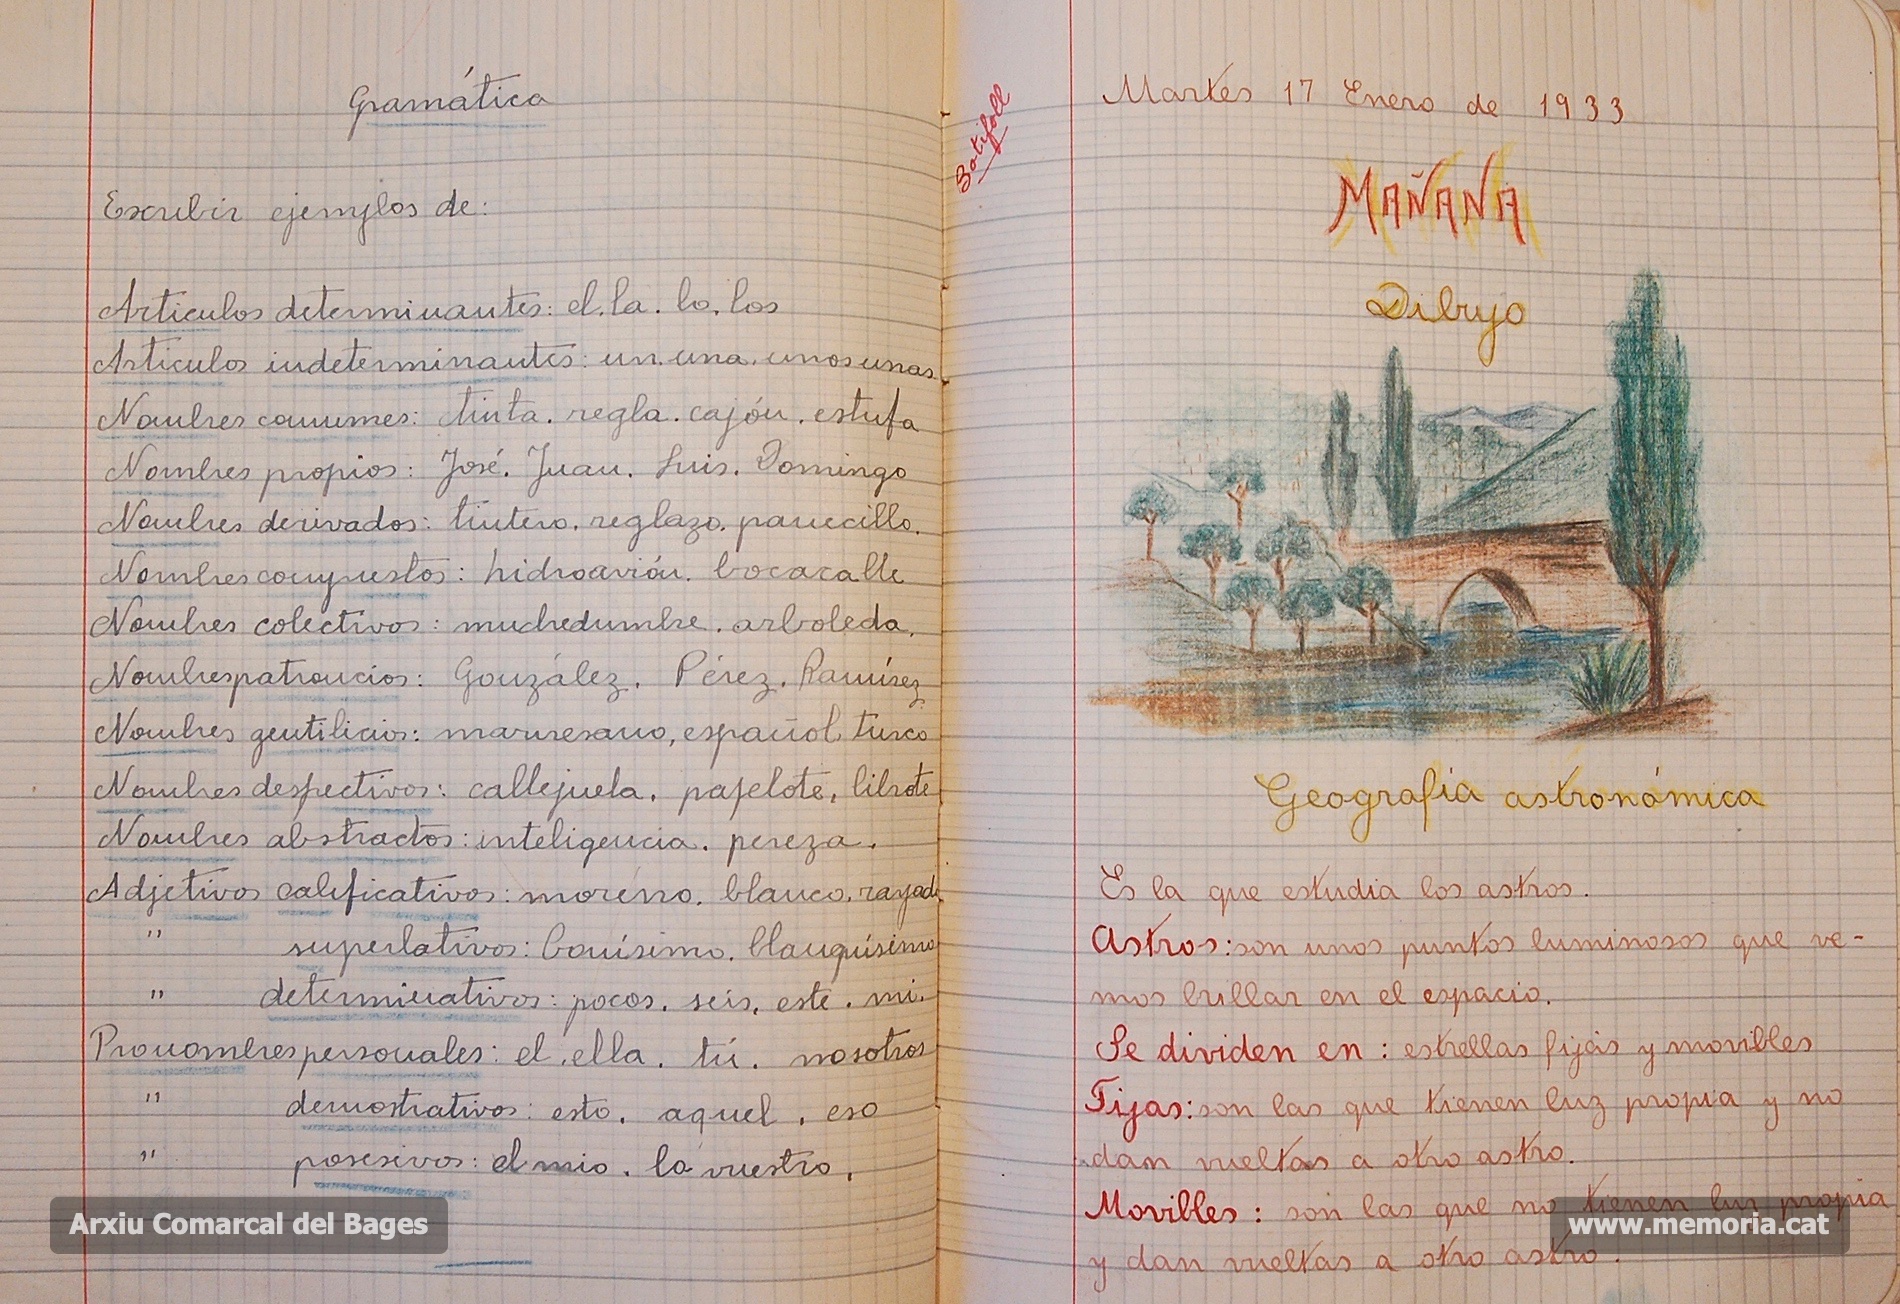 Gramática
Escribir ejemplos de:
Articulos determinantes: el. la. lo. los
Articulos indeterminantes: un. una. unos unas
Nombres comunes: tinta. regla. cajón. estufa
Nombres propios: José. Juan. Luis. Domingo
Nombres derivados: tintero. reglazo. panecillo.
Nombres compuestos: hidroavión. bocacalle
Nombres colectivos: muchedumbre. arboleda.
Nombres patronicios: González. Pérez. Ramírez
Nombres gentilicios: manresano, español turco
Nombres despectivos: callejuela. papelote, librote
Nombres abstractos: inteligencia. pereza.
Adjetivos calificativos: moreno. blanco. rayado
" superlativos: bonísimo. blanquísimo
" determinativos: pocos. seis. este. mi.
Pronombres personales: el. ella. tú. nosotros
" demostrativos: esto. aquel. eso
" posesivos: el mio. la vuestro.
Batifoll
Martes 17 Enero de 1933
MAÑANA
Dibujo
Geografía astronómica
Es la que estudia los astros.
Astros: son unos puntos luminosos que ve-
mos brillar en el espacio.
Se dividen en: estrellas fijas y movibles
Fijas: son las que tienen luz propia y no
dan vueltas a otro astro.
Movibles: son las que no tienen luz propia
y dan vueltas a otro astro.
Arxiu Comarcal del Bages
www.memoria.cat